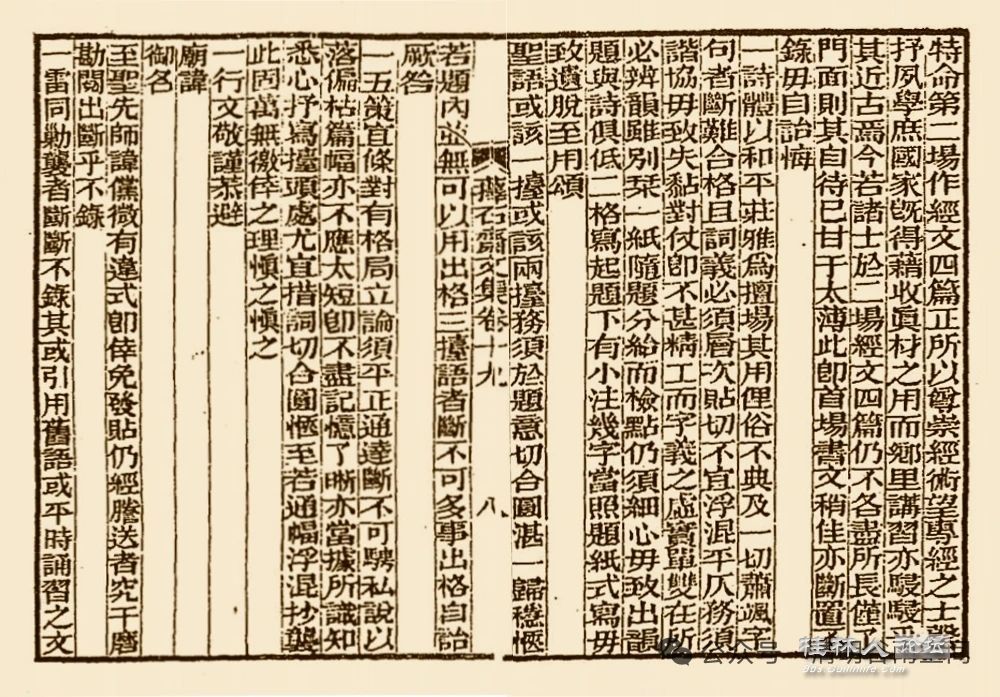 特命第二場作經文四篇正所以尊崇經術望專經之士殫
抒夙學庶國家既得藉收眞材之用而鄉里講習亦駸駸
其近古焉今若諸士於二場經文四篇仍不各盡所長僅以
門面則其自待已甘于太薄此卽首場書文稍佳亦斷置不
錄毋自詒悔
一詩體以和平莊雅爲擅場其用俚俗不典及一切蕭颯字
句者斷難合格且詞義必須層次貼切不宜浮混平仄務須
諧協毋致失黏對仗卽不甚精工而字義之虛實單雙在所
必辨韻雖別栞一紙隨題分給而檢點仍須細心毋致出韻
題與詩俱低二格寫起題下有小注幾字當照題紙式寫毋
致遺脫至用頌
聖語或該一擡或該兩擡務須於題意切合圓湛一歸穩愜
蘀石齋文集卷十九 八
若題內並無可以用出格三擡語者斷不可多事出格自詒
厥咎
一五策宜條對有格局立論須平正通達斷不可騁私說以
落偏枯篇幅亦不應太短卽不盡記憶了晰亦當據所識知
悉心抒寫擡頭處尤宜措詞切合圓愜至若通幅浮混抄襲
此固萬無徼倖之理愼之愼之
一行文敬謹恭避
廟諱
御名
至聖先師諱儻微有違式卽倖免發貼仍經謄送者究干磨
勘閱出斷乎不錄
一雷同勦襲者斷斷不錄其或引用舊語或平時誦習之文
桂林人论坛
公众号